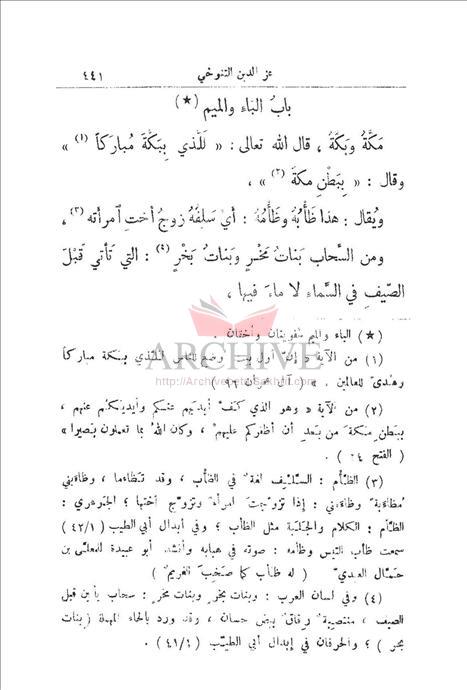 عز الدين التنوخي ٤٤١
باب الباء والميم (★)
مَكَّةُ وبَكَّةُ ، قال الله تعالى : « لَلَّذي بِبَكَّةَ مُبارَكاً (١) »
وقال : « بِبَطْنِ مكةَ (٢) » ،
ويُقال : هذا ظَأْبُهُ وظَأْمُهُ : أيْ سَلِفُهُ زوجُ أختِ امرأته (٣) ،
ومن السَّحاب بَناتُ مَخْرٍ وبَناتُ بَخْرٍ (٤) : التي تَأتي قَبْلَ
الصّيفِ في السَّماءِ لا ماءَ فيها ،
(★) الباء والميم شفويتان وأختان .
ARCHIVE
(١) من الآية « إن أول بيت وضع للناس للذي ببكة مباركاً
http://Archivebeta.Sakhrit.com
وهدى للعالمين . » ( آل عمران ٩٦ )
(٢) من الآية « وهو الذي كف أيديهم عنكم وأيديكم عنهم ،
ببطن مكة من بعد أن أظفركم عليهم ، وكان الله بما تعملون بصيرا »
( الفتح ٢٤ ) .
(٣) الظأم : السليف لغة في الظأب ، وقد تظاءما ، وظاءبني
مظاءبة وظاءمني : إذا تزوجت امرأة وتزوج أختها ؛ الجوهري :
الظأم : الكلام والجلبة مثل الظأب ؛ وفي أبدال أبي الطيب (٤٢/١)
سمعت ظأب التيس وظأمه : صوته في هبابه وأنشد أبو عبيدة للمعلى بن
العبدي ( له ظأب كما صخب الغريم )
(٤) وفي لسان العرب : وبنات بخر وبنات مخر : سحاب يأتين قبل
الصيف ، منتصبة رقاق بيض حسان ، وقد ورد بالحاء المهملة (بنات
بحر ) ؛ والحرفان في إبدال أبي الطيب ( ٤١/١ )